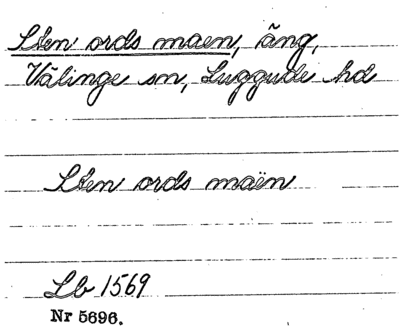 Sten ords maen, äng,
Välinge sn, Luggude hd
Sten ords maën
Lb 1569
Nr 5696.